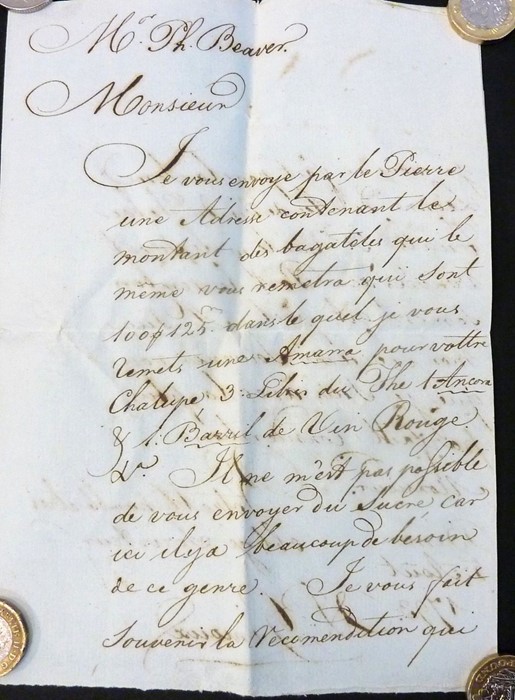 Mr. Ph. Beaver.
Monsieur
Je vous envoye par le Pierre
une Adresse contenant le
montant des bagateles qui le
même vous remetra qui sont
100$125rs. dans le quel je vous
remets une Amarra pour vottre
Chalupe 3. du The 1 Ancora
& 1. Barril de Vin Rouge.
Il ne m'est pas possible
de vous envoyer du Sucre car
ici il ÿa beaucoup de besoin
de ce genre. Je vous fait
souvenir la recomendition qui